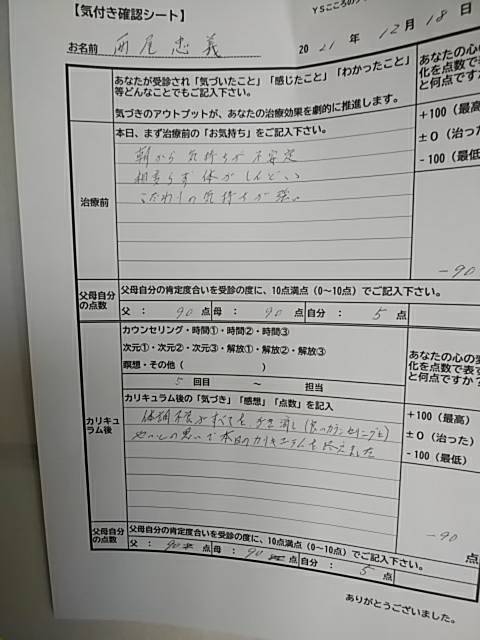 【気付き確認シート】
YSこころの
お名前 西尾忠義 2021年12月18日
あなたが受診され「気づいたこと」「感じたこと」「わかったこと」
等どんなことでもご記入下さい。
気づきのアウトプットが、あなたの治療効果を劇的に推進します。
あなたの心の
化を点数で表
と何点ですか
治療前
本日、まず治療前の「お気持ち」をご記入下さい。
朝から気持ちが不安定
相変らず体がしんどい
こだわりの気持ちが強い
+100（最高）
±0（治った）
-100（最低）
-90
父母自分の点数
父母自分の肯定度合いを受診の度に、10点満点（0～10点）でご記入下さい。
父： 90点 母： 90点 自分： 5点
カリキュラム後
カウンセリング・時間①・時間②・時間③
次元①・次元②・次元③・解放①・解放②・解放③
瞑想・その他（ ）
5回目 ～ 担当
カリキュラム後の「気づき」「感想」「点数」を記入
体調不良がすべてを打ち消し(良いカウンセリングも)
やっとの思いで本日のカリキュラムを終えました
あなたの心の変
化を点数で表す
と何点ですか？
+100（最高）
±0（治った）
-100（最低）
-90
点
父母自分の点数
父母自分の肯定度合いを受診の度に、10点満点（0～10点）でご記入下さい。
父： 90点 母： 90点 自分： 5点
ありがとうございました。